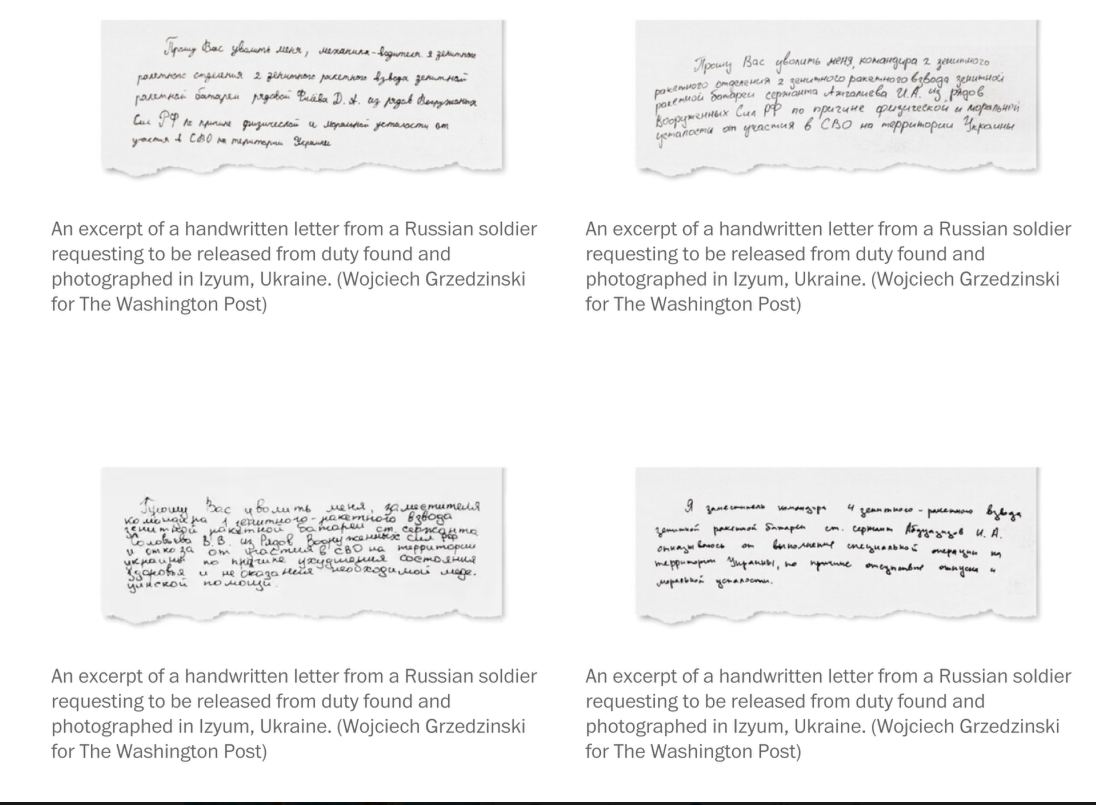 Прошу Вас уволить меня, механика-водителя 2 зенитного
ракетного отделения 2 зенитного ракетного взвода зенитной
ракетной батареи рядовой Д. А. из рядов Вооруженных
Сил РФ по причине физической и моральной усталости от
участия в СВО на территории Украины
An excerpt of a handwritten letter from a Russian soldier
requesting to be released from duty found and
photographed in Izyum, Ukraine. (Wojciech Grzedzinski
for The Washington Post)
Прошу Вас уволить меня, командира 2 зенитного
ракетного отделения 2 зенитного ракетного взвода зенитной
ракетной батареи сержанта И.А. из рядов
Вооруженных Сил РФ по причине физической и моральной
усталости от участия в СВО на территории Украины
An excerpt of a handwritten letter from a Russian soldier
requesting to be released from duty found and
photographed in Izyum, Ukraine. (Wojciech Grzedzinski
for The Washington Post)
Прошу Вас уволить меня, заместителя
командира 1 зенитного-ракетного взвода
зенитной ракетной батареи ст. сержанта
Соловьева В.В. из Рядов Вооруженных сил РФ
и отказа от участия в СВО на территории
украины по причине ухудшения состояния
здоровья и не оказания необходимой меде-
цинской помощи.
An excerpt of a handwritten letter from a Russian soldier
requesting to be released from duty found and
photographed in Izyum, Ukraine. (Wojciech Grzedzinski
for The Washington Post)
Я заместитель командира 4 зенитного-ракетного взвода
зенитной ракетной батареи ст. сержант И. А.
отказываюсь от выполнение специальной операции на
территории Украины, по причине отсутствие отпуска и
моральной усталости.
An excerpt of a handwritten letter from a Russian soldier
requesting to be released from duty found and
photographed in Izyum, Ukraine. (Wojciech Grzedzinski
for The Washington Post)